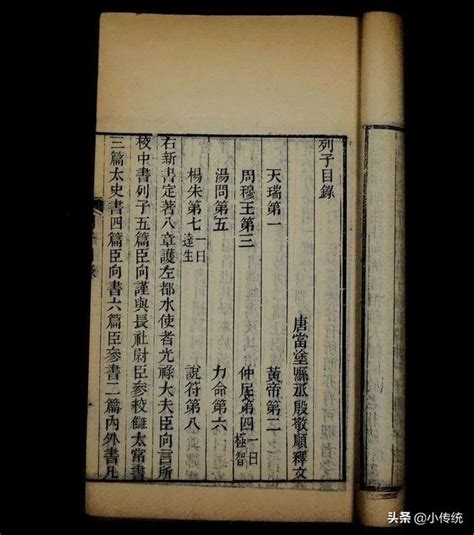 列子目錄
唐當塗縣丞殷敬順釋文
天瑞第一 黃帝第二
周穆王第三 仲尼第四一曰極智
湯問第五 力命第六
楊朱第七一曰達生 說符第八
右新書定著八章護左都水使者光祿大夫臣向言所
校中書列子五篇臣向謹與長社尉臣參校讎太常書
三篇太史書四篇臣向書六篇臣參書二篇內外書凡
头条 @小传统